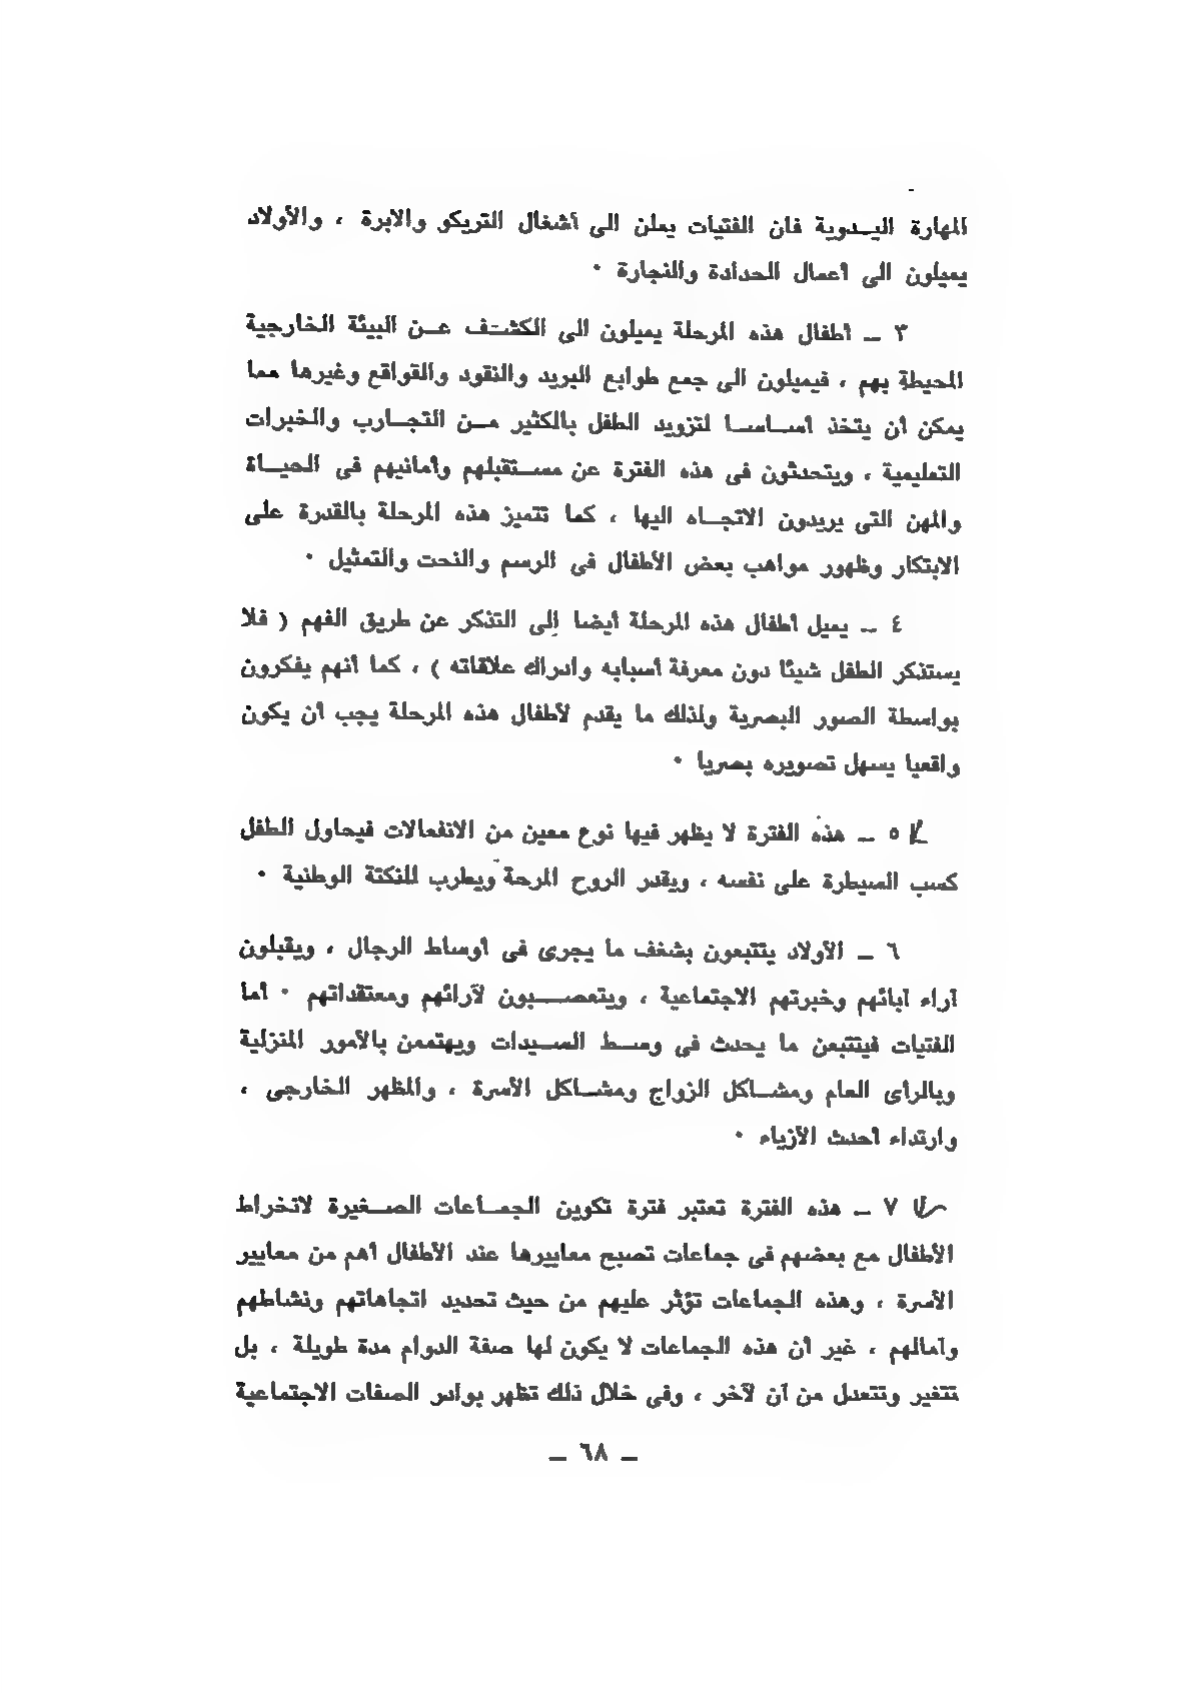 المهارة اليدوية فان الفتيات يملن الى أشغال التريكو والابرة ، والأولاد
يميلون الى أعمال الحدادة والنجارة ·
٣ ــ أطفال هذه المرحلة يميلون الى الكشف عن البيئة الخارجية
المحيطة بهم ، فيميلون الى جمع طوابع البريد والنقود والقواقع وغيرها مما
يمكن أن يتخذ أساسا لتزويد الطفل بالكثير من التجارب والخبرات
التعليمية ، ويتحدثون فى هذه الفترة عن مستقبلهم وأمانيهم فى الحياة
والمهن التى يريدون الاتجاه اليها ، كما تتميز هذه المرحلة بالقدرة على
الابتكار وظهور مواهب بعض الأطفال فى الرسم والنحت والتمثيل ·
٤ ــ يميل أطفال هذه المرحلة أيضا إلى التذكر عن طريق الفهم ( فلا
يستذكر الطفل شيئا دون معرفة أسبابه وادراك علاقاته ) ، كما أنهم يفكرون
بواسطة الصور البصرية ولذلك ما يقدم لأطفال هذه المرحلة يجب أن يكون
واقعيا يسهل تصويره بصريا ·
٥ ــ هذه الفترة لا يظهر فيها نوع معين من الانفعالات فيحاول الطفل
كسب السيطرة على نفسه ، ويقدر الروح المرحة ويطرب للنكتة الوطنية ·
٦ ــ الأولاد يتتبعون بشغف ما يجرى فى أوساط الرجال ، ويقبلون
آراء آبائهم وخبرتهم الاجتماعية ، ويتعصبون لآرائهم ومعتقداتهم · أما
الفتيات فيتتبعن ما يحدث فى وسط السيدات ويهتممن بالأمور المنزلية
وبالرأى العام ومشاكل الزواج ومشاكل الأسرة ، والمظهر الخارجى ،
وارتداء أحدث الأزياء ·
٧ ــ هذه الفترة تعتبر فترة تكوين الجماعات الصغيرة لانخراط
الأطفال مع بعضهم فى جماعات تصبح معاييرها عند الأطفال أهم من معايير
الأسرة ، وهذه الجماعات تؤثر عليهم من حيث تحديد اتجاهاتهم ونشاطهم
وآمالهم ، غير أن هذه الجماعات لا يكون لها صفة الدوام مدة طويلة ، بل
تتغير وتتعدل من آن لآخر ، وفى خلال ذلك تظهر بوادر الصفات الاجتماعية
ــ ٦٨ ــ